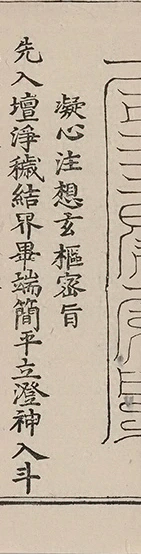 凝心注想玄樞密旨
先入壇淨穢結界畢端簡平立澄神入斗